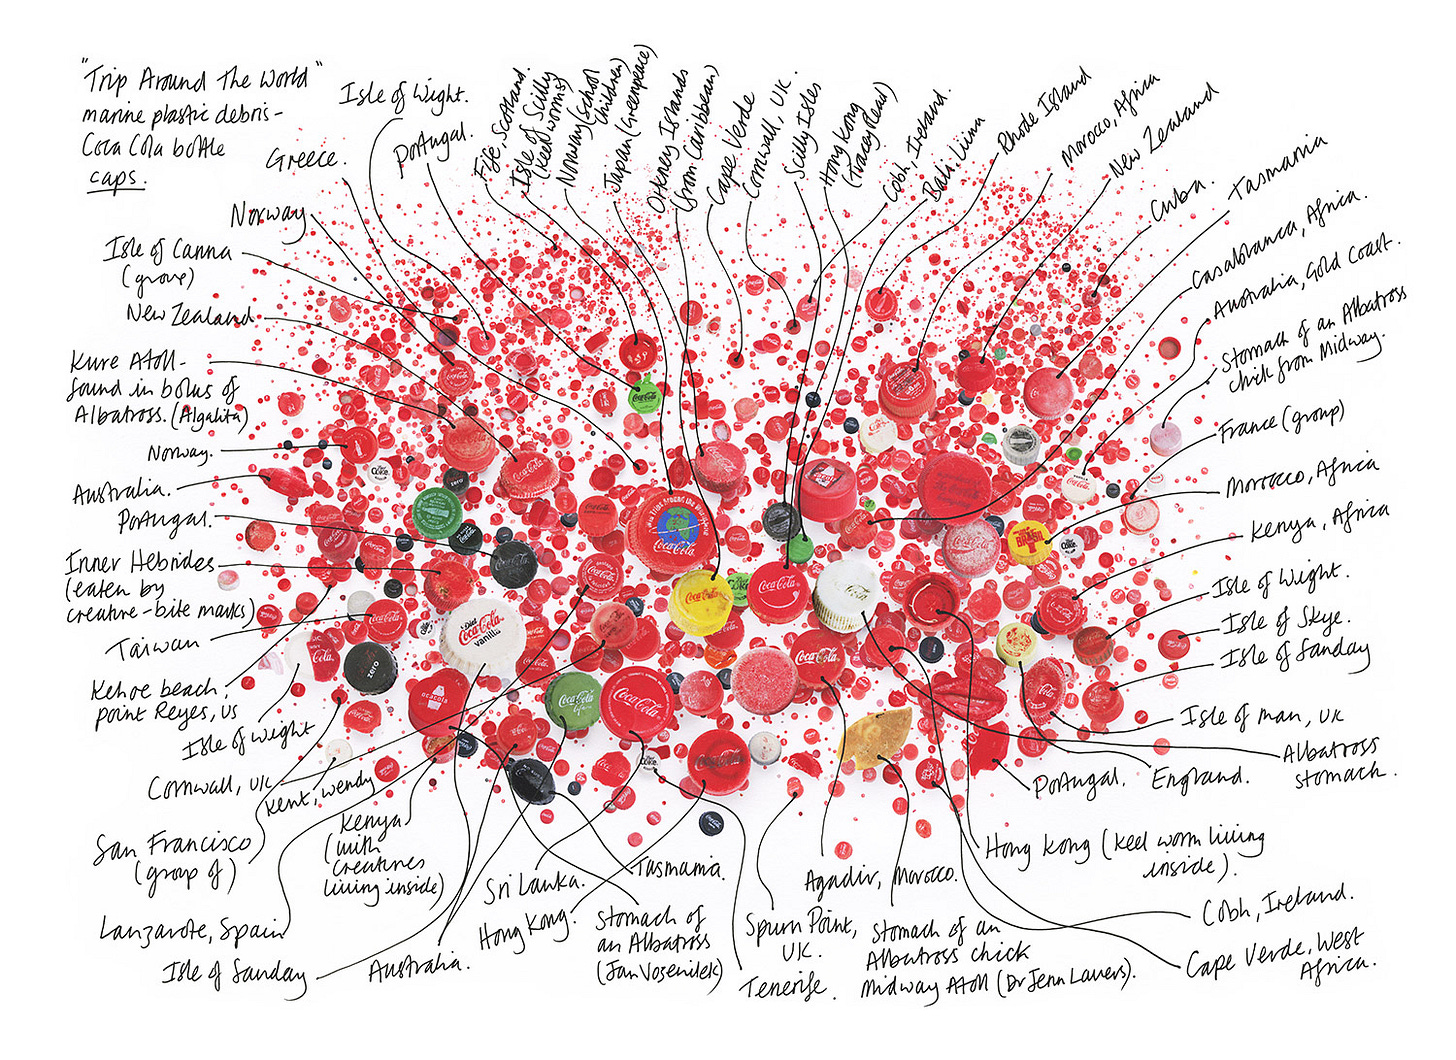 "Trip Around The World"
marine plastic debris -
Coca Cola bottle
caps.
Isle of Wight.
Greece.
Portugal.
Fife, Scotland.
Isle of Scilly
(Keel worms)
Norway (School
Children)
Japan (Greenpeace)
Orkney Islands
(from Caribbean)
Cape Verde
Cornwall, UK.
Scilly Isles
Hong Kong
(Tracey Read)
Cobh, Ireland.
Bali, Lina
Rhode Island
Morocco, Africa
New Zealand
Cuba.
Tasmania
Casablanca, Africa.
Australia, Gold Coast.
Stomach of an Albatross
chick from Midway.
France (group)
Morocco, Africa
Kenya, Africa
Isle of Wight.
Isle of Skye.
Isle of Sanday
Isle of Man, UK
Albatross
stomach.
England.
Portugal.
Hong Kong (keel worm living
inside).
Cobh, Ireland.
Cape Verde, West
Africa.
Norway
Isle of Canna
(group)
New Zealand
Kure Atoll -
found in bolus of
Albatross. (Algalita)
Norway.
Australia.
Portugal.
Inner Hebrides
(eaten by
creature - bite marks)
Taiwan
Kehoe beach,
point Reyes, US
Isle of Wight
Cornwall, UK
Kent, Wendy
San Francisco
(group of)
Kenya
(with
creatures
living inside)
Lanzarote, Spain
Isle of Sanday
Australia.
Sri Lanka.
Hong Kong.
Tasmania.
Stomach of
an Albatross
(Jan Vosenilek)
Tenerife.
Spurn Point,
UK.
Agadir, Morocco.
Stomach of an
Albatross chick
Midway Atoll (Dr Jenn Lavers).
Coca-Cola
Diet
Coca-Cola
vanilla
zero
Coca-Cola
life
Coca-Cola
Coca-Cola
Coca-Cola
Coca-Cola
BRASIL
Diet
Coke
zero